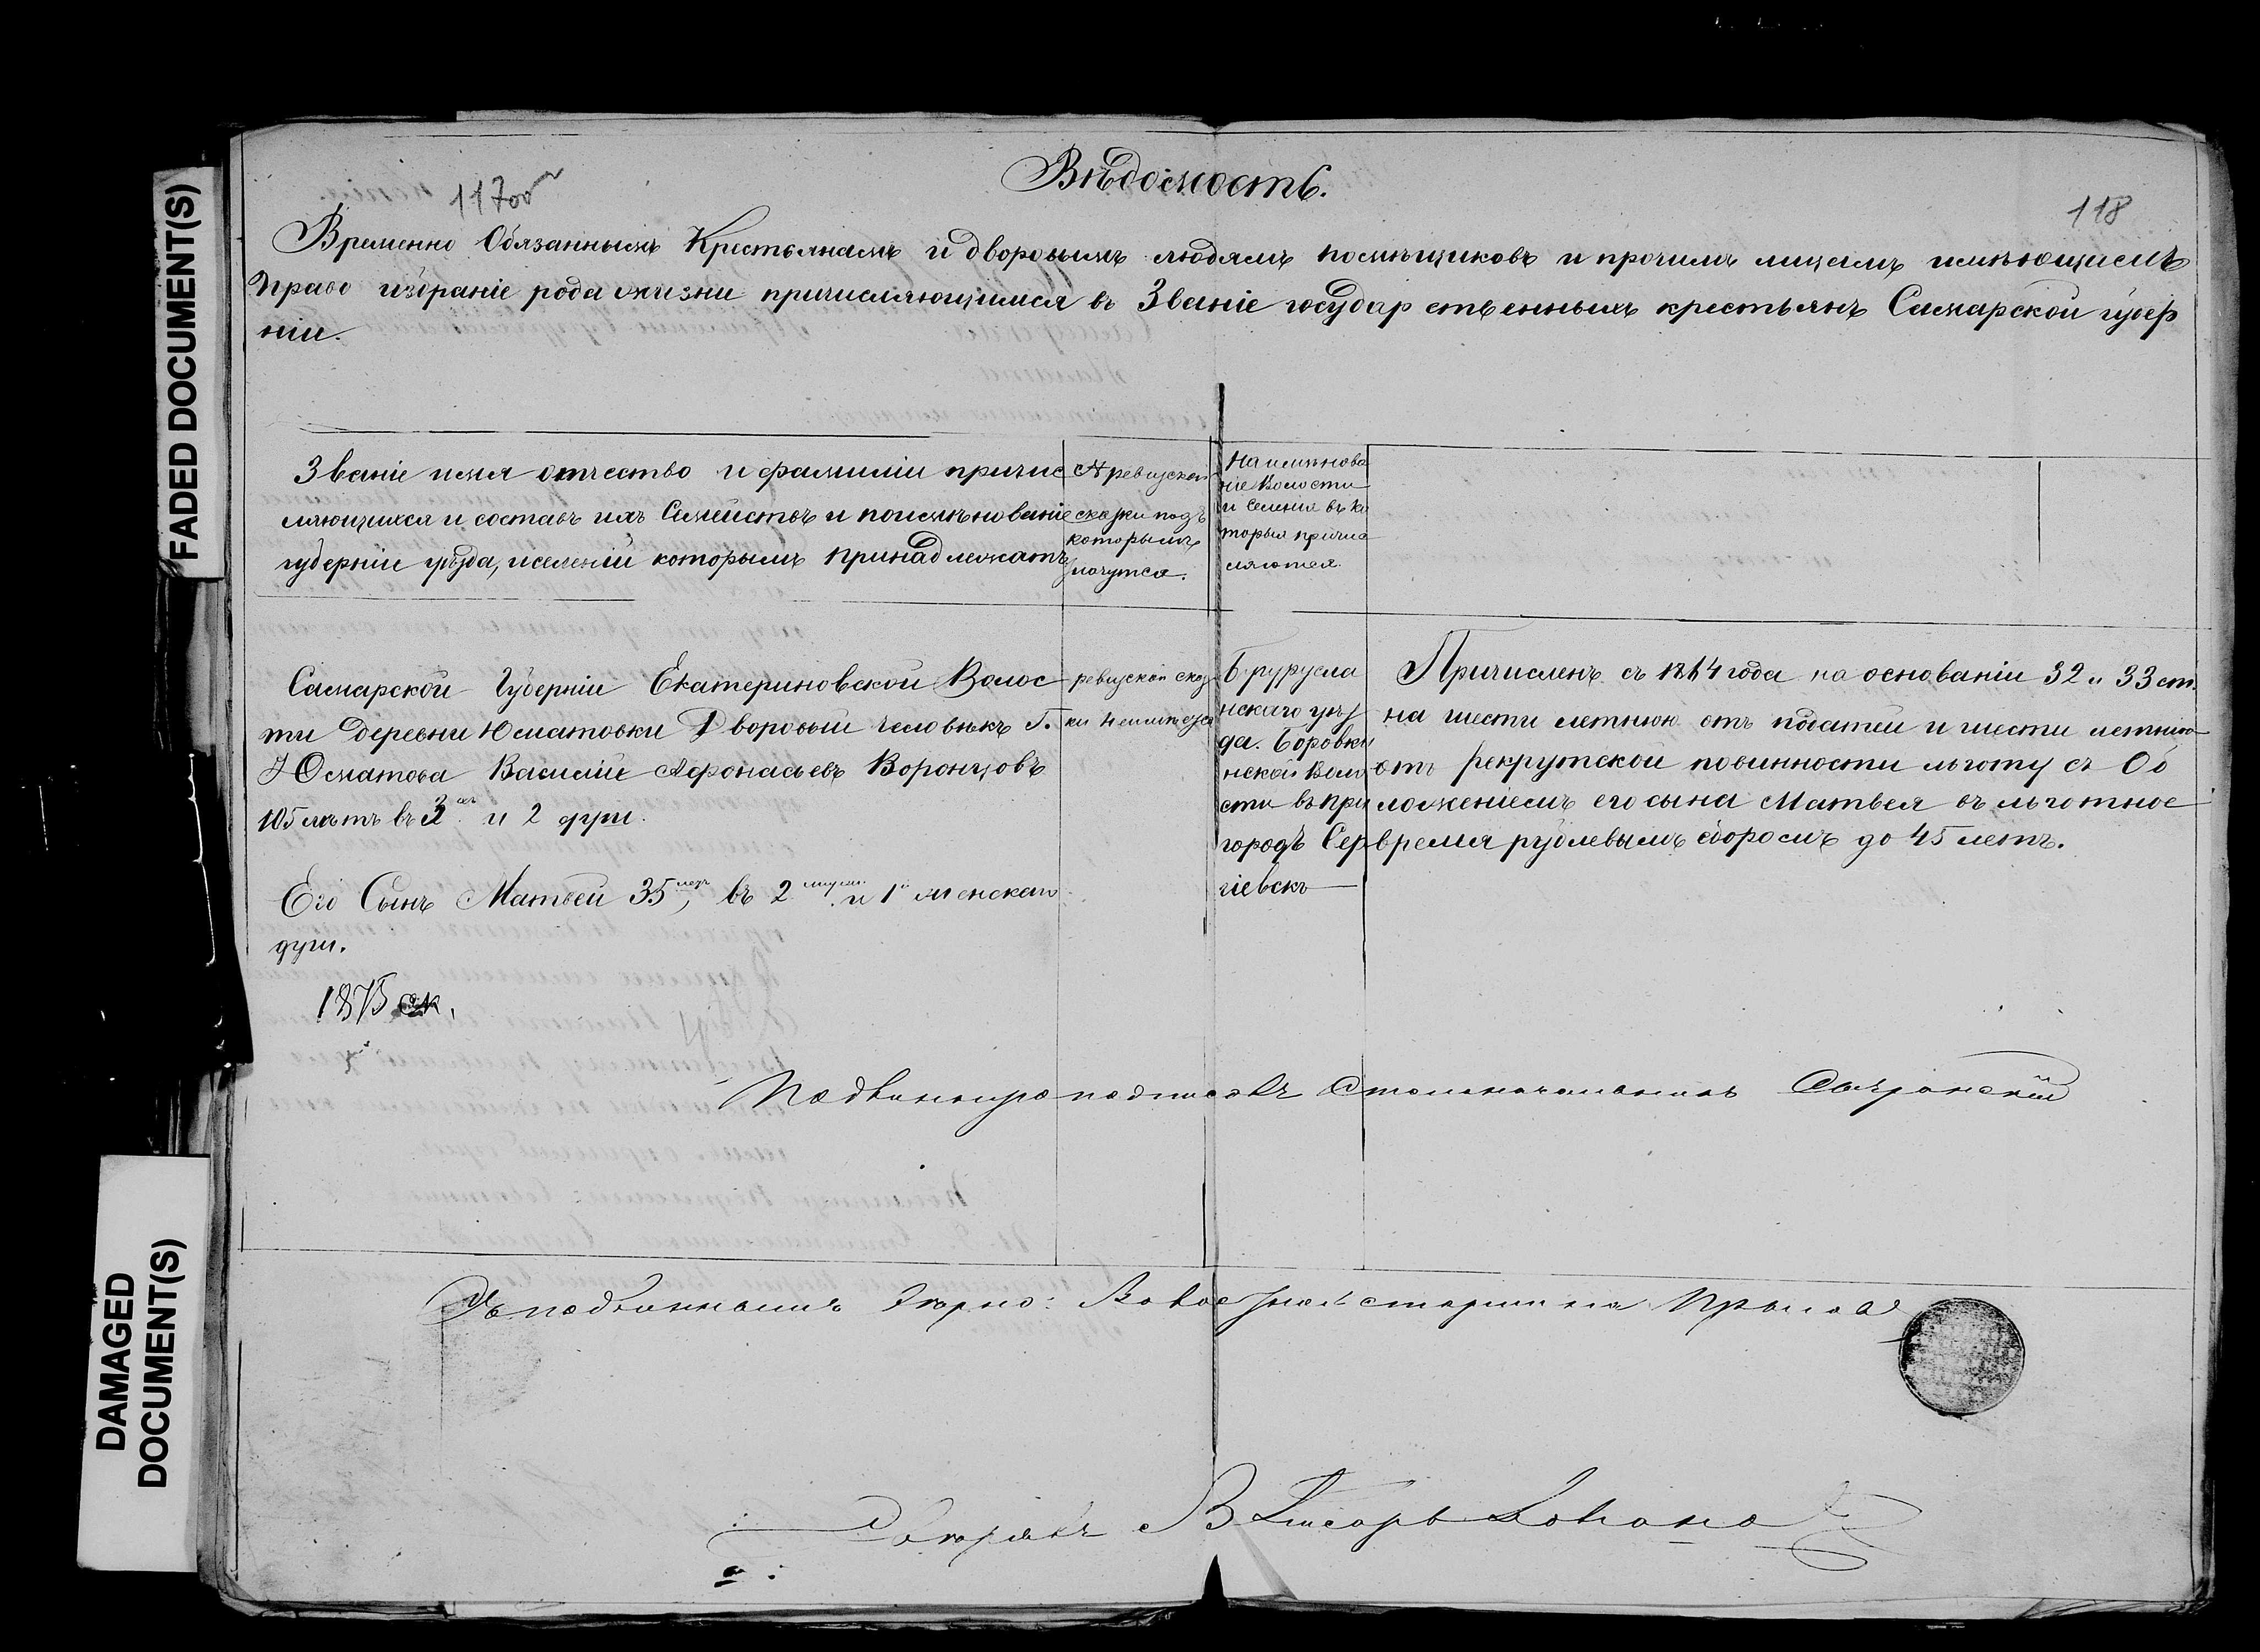 FADED DOCUMENT(S)
DAMAGED
DOCUMENT(S)
Вѣдомость.
117об
118
Временно Обязаннымъ Крестьянамъ и дворовымъ людямъ помѣщиковъ и прочимъ лицамъ имѣющимъ
право избраніе рода жизни причисляющимся въ Званіе государственныхъ крестьянъ Самарской губер
ніи.
Званіе имя отчество и фамиліи причис
ляющихся и составъ ихъ Семействъ и поимѣнованіе
губерніи уѣзда, иселеній которымъ принадлежатъ
№ ревизской
сказки подъ
которымъ
значутся.
Наимѣнова
ніе Волости
и Селенія въ ко
торыя причис
ляются.
Самарской Губерніи Екатериновской Волос
ти деревни Юматовки Дворовый человѣкъ Г.
Юматова Василій Афонасьевъ Воронцовъ
105 лѣтъ въ 3 и 2 душ.
Его Сынъ Матвей 35 лѣтъ, въ 2 муж. и 1 женскаго
душ.
1875
ревизской сказ
ки неимѣется
Бугурусла
нскаго уѣз
да. Боровки
нской Воло
сти въ при
городъ Сер
гіевскъ
Причисленъ съ 1864 года на основаніи 32 и 33 ст.
на шести летнюю отъ податей и шести летнюю
отъ рекрутской повинности льготу съ Об
ложеніемъ его сына Матвея въ льготное
время рублевымъ сборомъ до 45 летъ.
Подлинную подписалъ Столоначальникъ
Съ подлиннымъ верно: Волостной старшина
Писарь